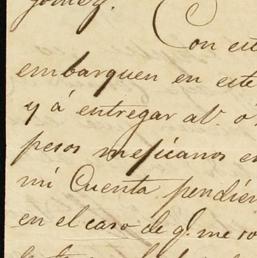 Gomez.
Con est
embarquen en este
y á entregar al. ó
pesos mejicanos en
mi Cuenta pendien
en el caso de q. me